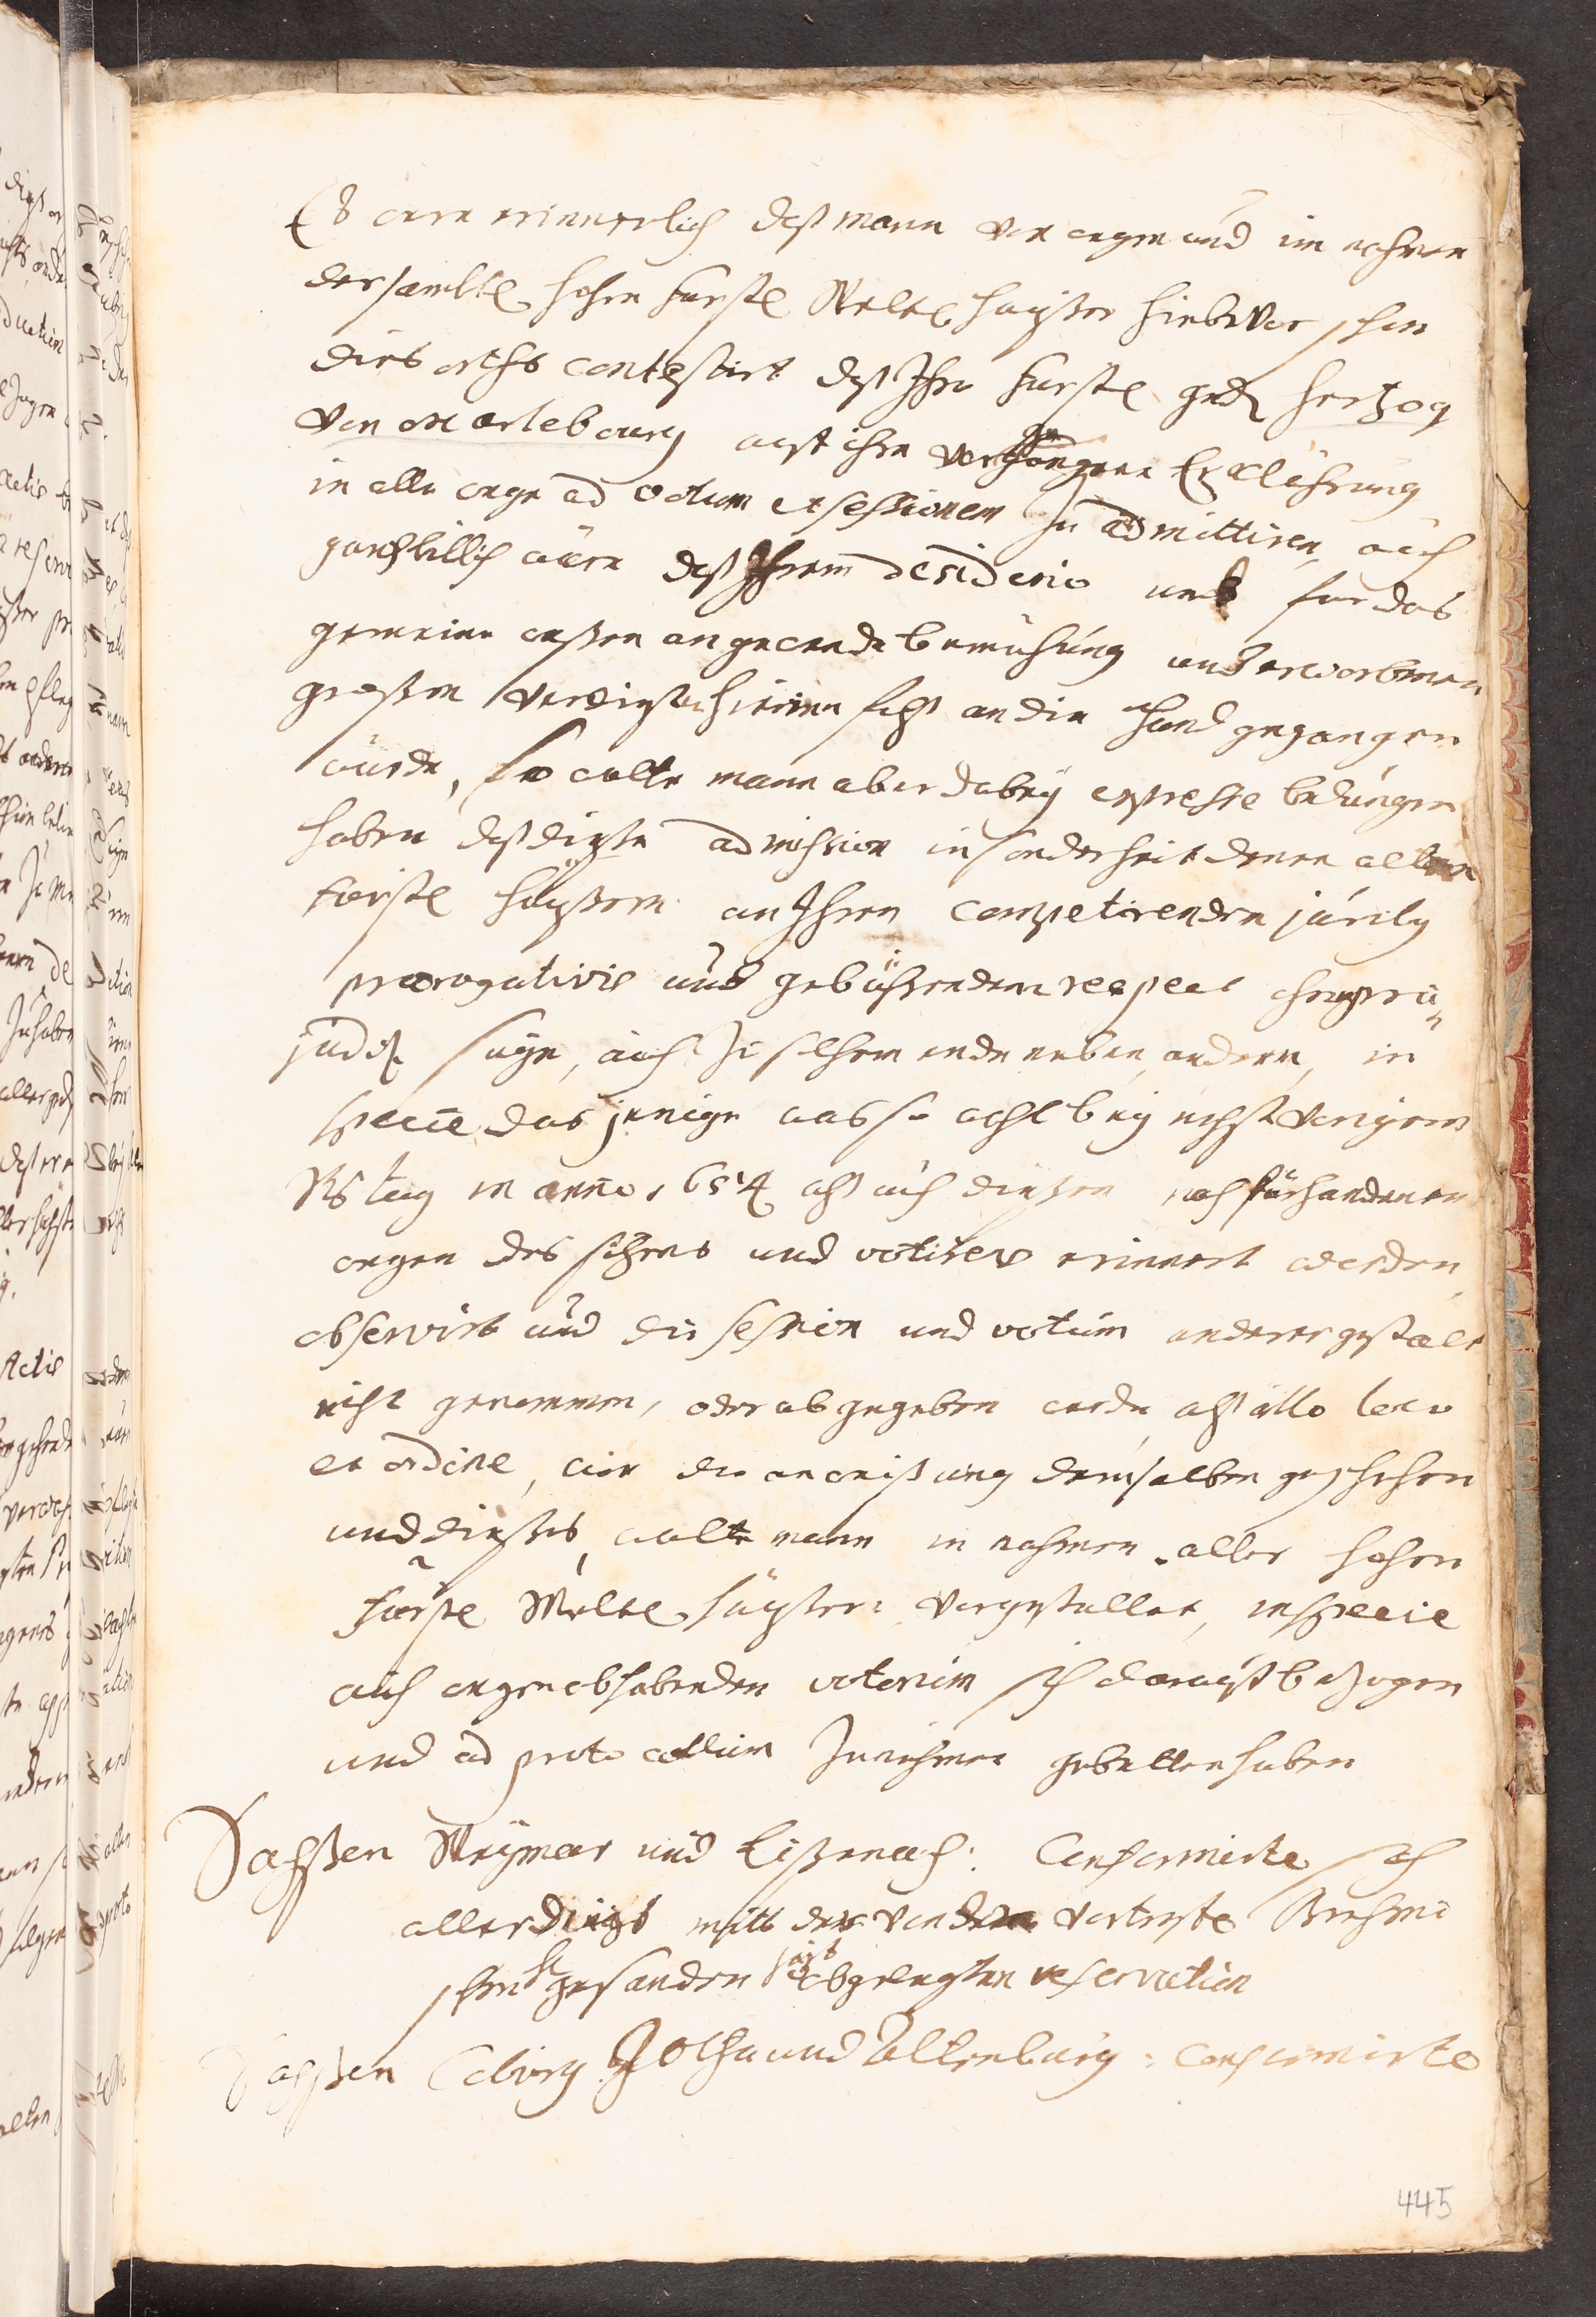 Es were erinnerlich daß mann von wegen und im nahmen
der sambtl. hohen fürstl. Weltl. häyßer hiebevor schon
dies orths contestirt daß Ihro fürstl. gndn hertzog
von Marlebourg auf ihre vorhergangene Erclährung
in alle wege ad votum et sessionem zu admittiren, auch
gar billich wäre daß Ihrem desiderio umb für das
gemeine weßen angewende bemühung und erworbenen
großen verdienste hierinn fals an die hand gegangen
würde, So wolte mann aber dabey expresse bedungen
haben daß dieße admission insonderheit denen alten
fürstl. häyßern an Ihren competirenden jurib9
praerogativis und gebührendem respect ohnpræ-
judicirl. seye, auch zu solchem ende neben andern, in
specie das jenige was so wohl bey nechst vorigem
Rstag in anno 1654 alß auch dießem noch fürhandenen
wegen des sitzens und votirens erinnert worden,
observirt und die session und votum anderer gestalt
nicht genommen, oder abgegeben werde, alß illo loco
et ordine, wie die anweißung demselben geschehen
und dießes wolte mann in nahmen aller hohen
fürstl. Weltl. häyßern vorgestellet, in specie
auch wegen obhabenden votorum sich darauf bezogen
und ad protocollum zu nehmen gebetten haben
Sachßen Weymar und Eißenach: Conformirte sich
allerdings mitt der von dem vortrefl. Brehmi
schen h. gesanden hierbst abgelegten reservation
Sachßen Coburg Gotha und Altenburg: conformirte
445